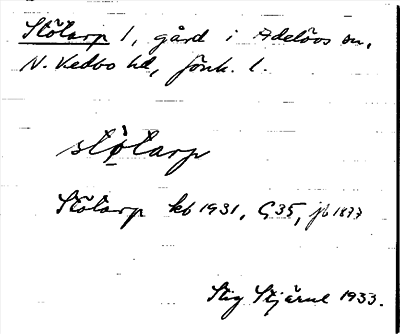 Stötarp 1, gård i Adelövs sn,
N. Vedbo hd, Jönk. l.
stö̀tarp
Stötarp kb 1931, G35, jb 1877
Stig Stjärne 1933.